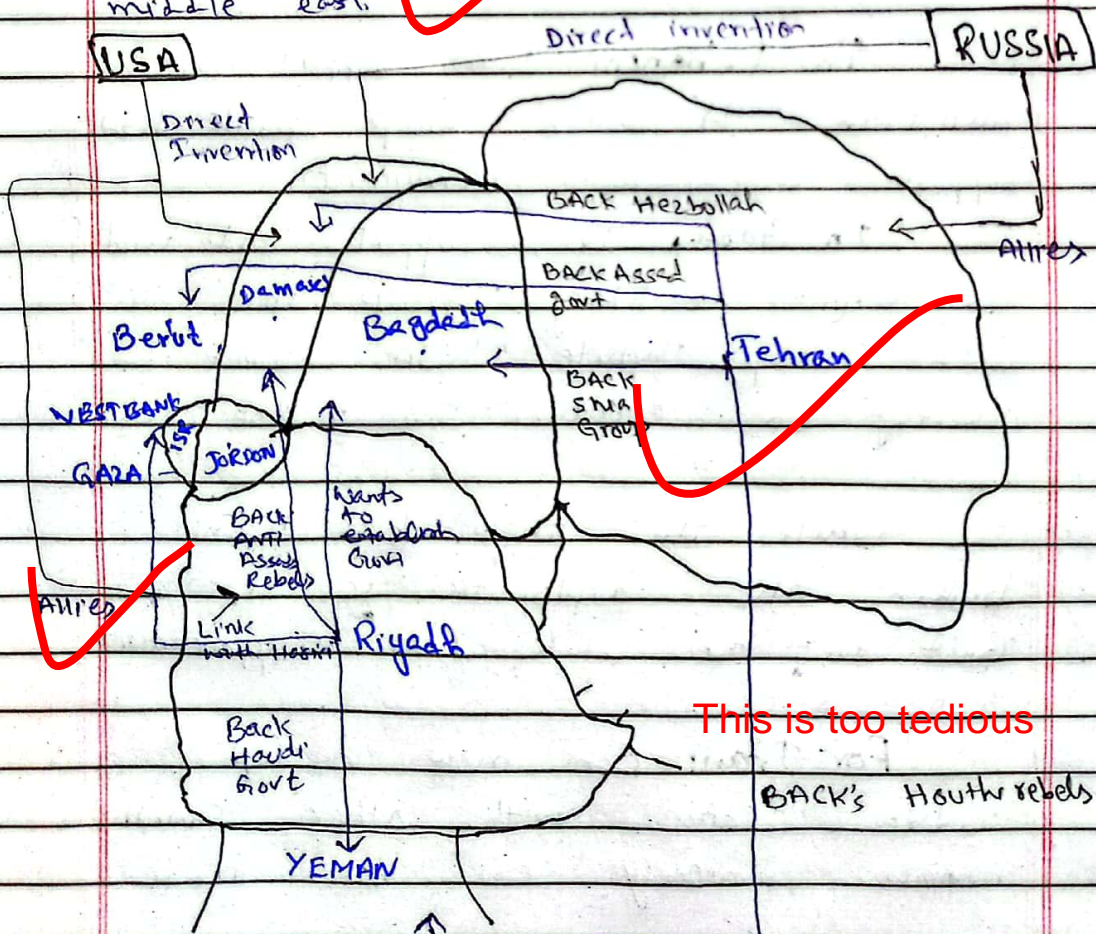 middle east.
USA
Direct invention
RUSSIA
Direct
Invention
BACK Hezbollah
Allies
BACK Assad
govt
Damascs
Berut
Bagdadh
Tehran
BACK
Shia
Group
WESTBANK
ISR
JORDON
GAZA
BACK
ANTI
Assad
Rebels
Wants
to
establish
Govt
Allies
Link
with
Riyadh
This is too tedious
Back
Houdi
Govt
BACK's Houthi rebels
YEMAN